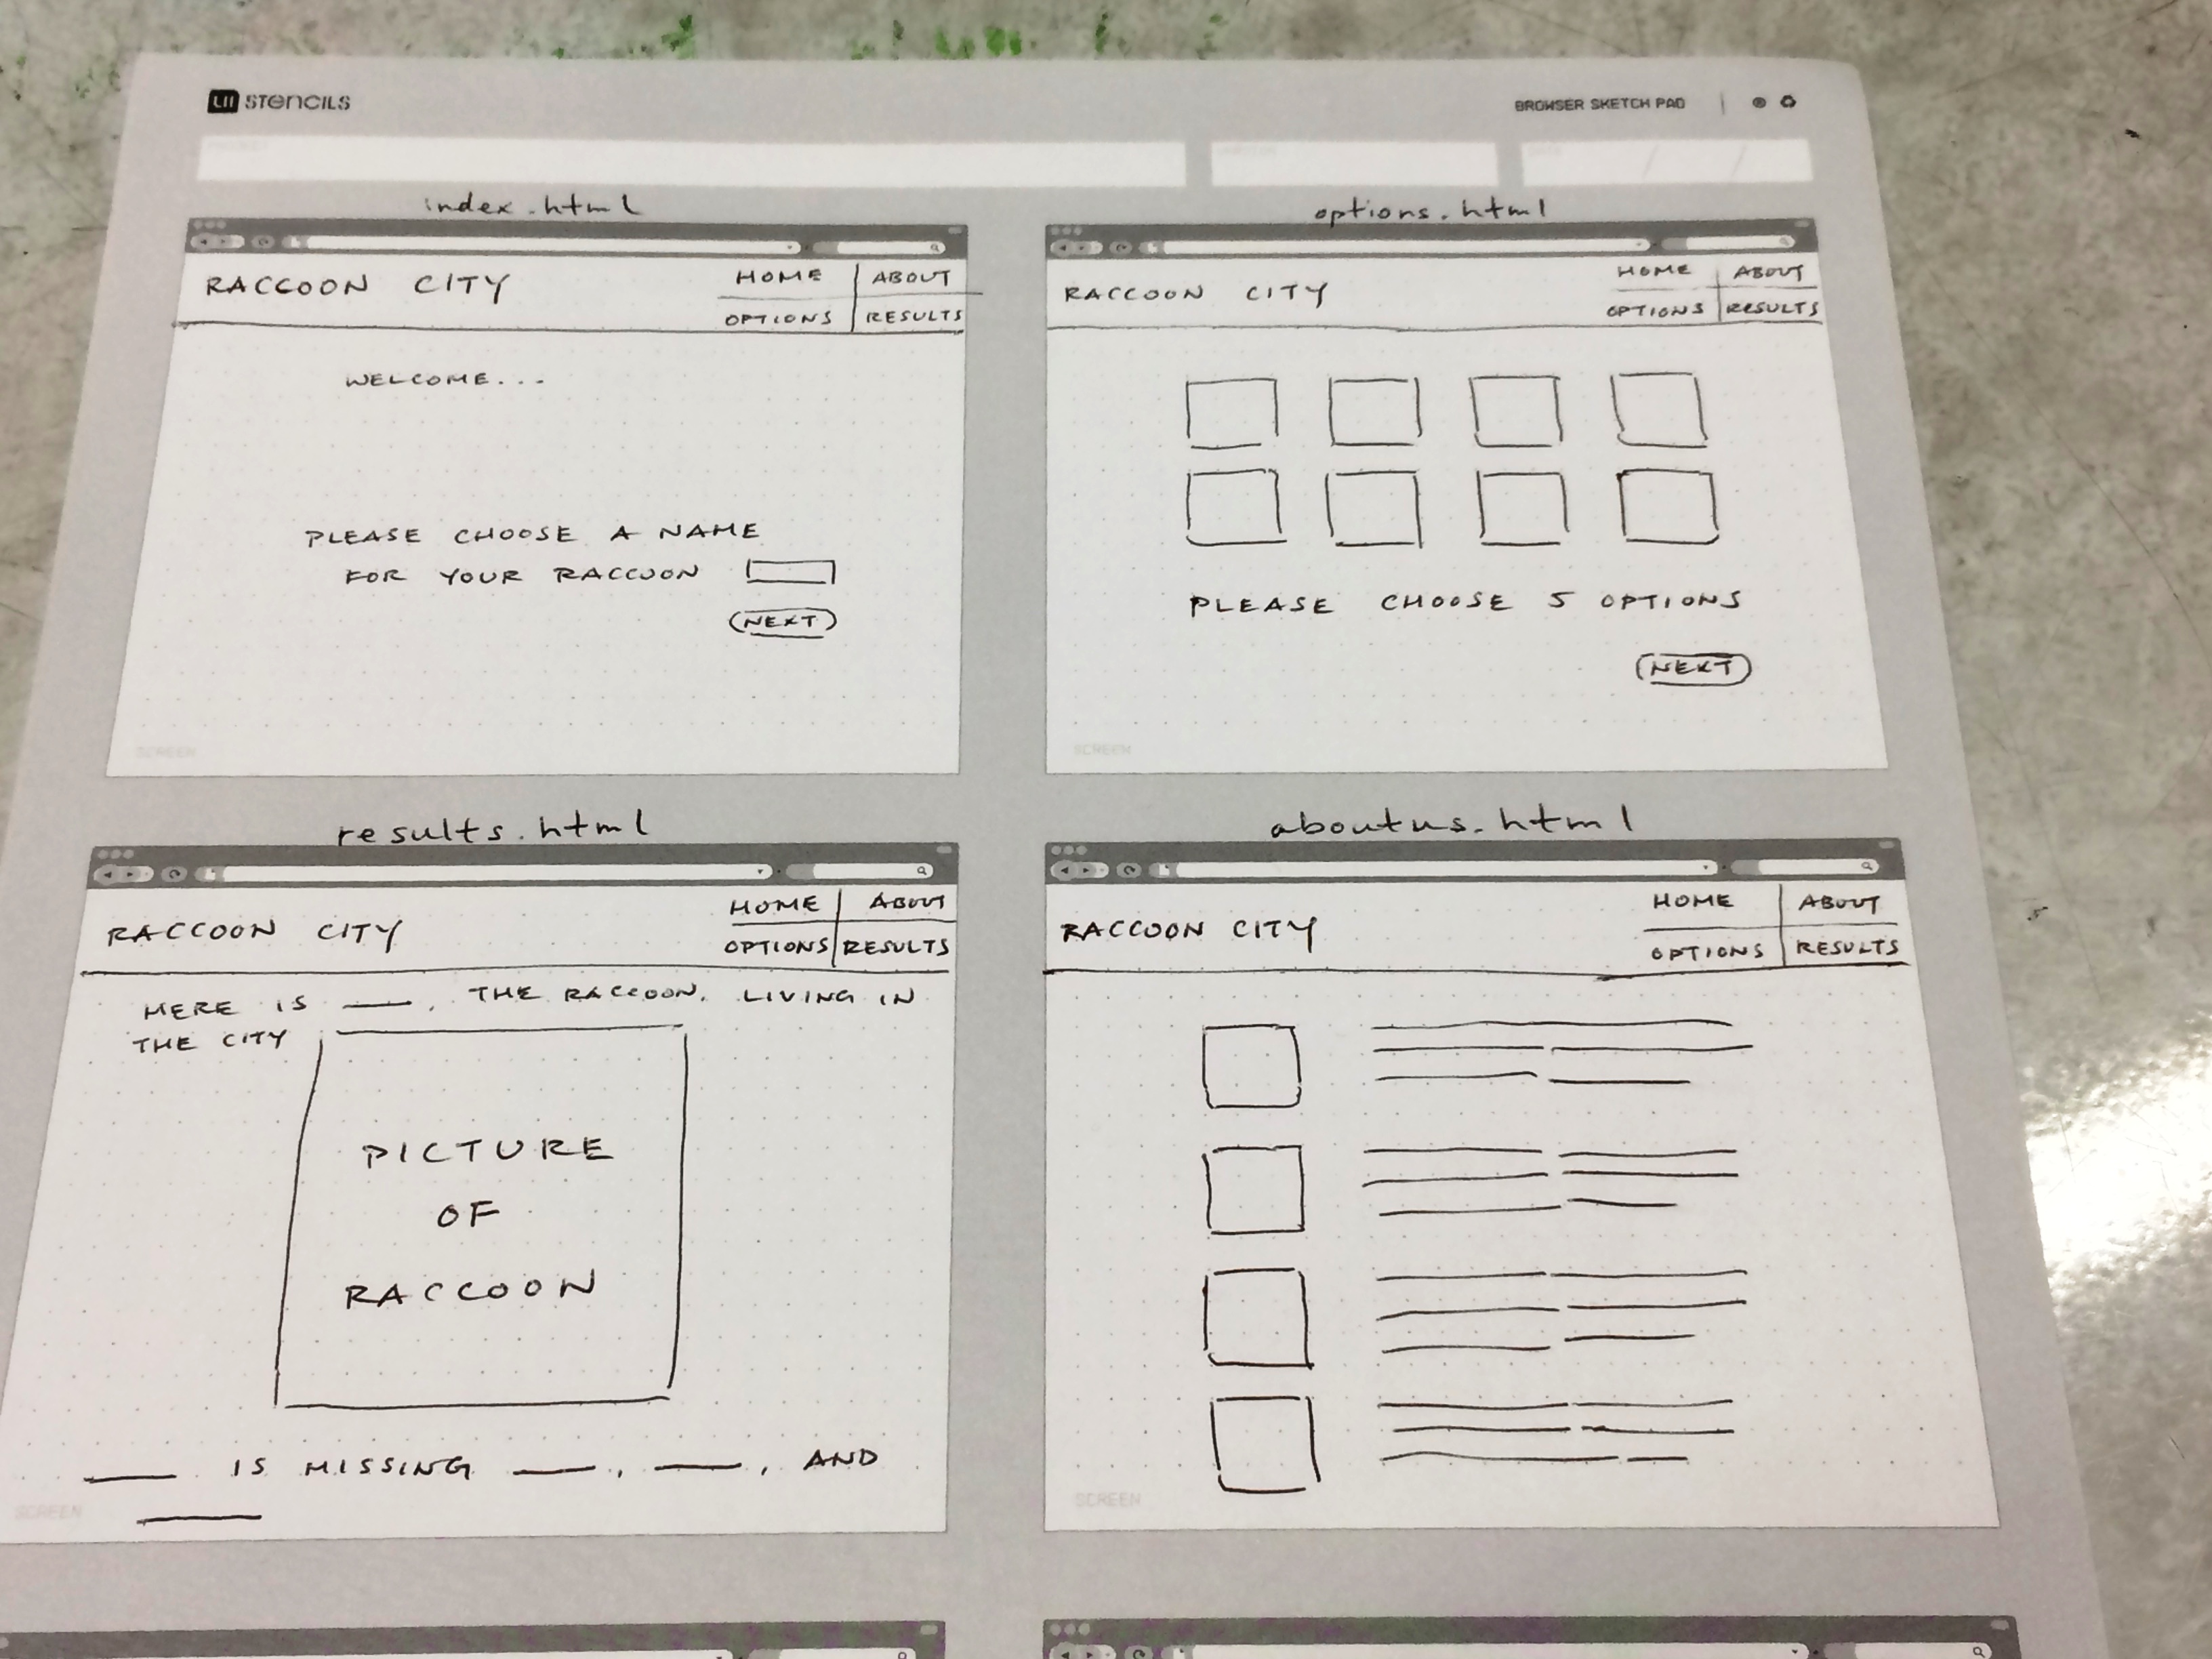 UI STENCILS
BROWSER SKETCH PAD
index.html
RACCOON CITY
HOME
ABOUT
OPTIONS
RESULTS
WELCOME...
PLEASE CHOOSE A NAME
FOR YOUR RACCOON
NEXT
SCREEN
options.html
RACCOON CITY
HOME
ABOUT
OPTIONS
RESULTS
PLEASE CHOOSE 5 OPTIONS
NEXT
SCREEN
results.html
RACCOON CITY
HOME
ABOUT
OPTIONS
RESULTS
HERE IS ___, THE RACCOON. LIVING IN
THE CITY
PICTURE
OF
RACCOON
___ IS MISSING ___, ___, AND
___
SCREEN
aboutus.html
RACCOON CITY
HOME
ABOUT
OPTIONS
RESULTS
SCREEN